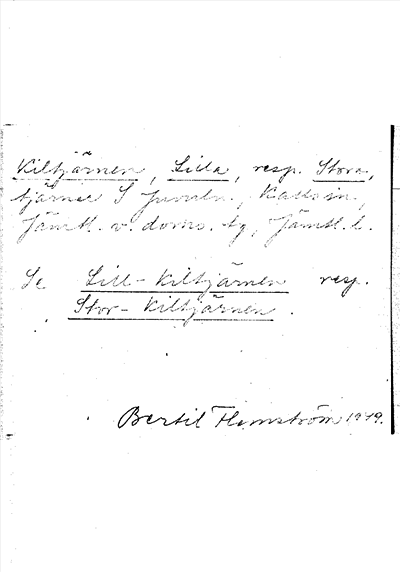 Kiltjärnen, Lilla, resp. Stora,
tjärnar S Juveln, Kall sn,
Jämtl. v. doms. tg, Jämtl. l.
Se Lill-Kiltjärnen resp.
Stor-Kiltjärnen.
Bertil Flemström 1949.